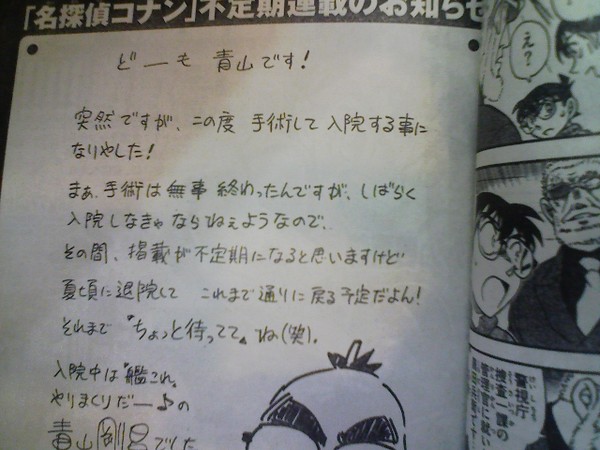 「名探偵コナン」不定期連載のお知らせ
どーも 青山です!
突然ですが、この度 手術して 入院する事に
なりやした!
まぁ、手術は無事 終わったんですが、しばらく
入院しなきゃならねぇようなので、
その間、掲載が不定期になると思いますけど
夏頃に退院して これまで通りに戻る予定だよん!
それまで『ちょっと待ってて』ね(笑)。
入院中は『艦これ』
やりまくりだー♪の
青山剛昌でした
え?
警視庁
捜査一課の
管理官に就い